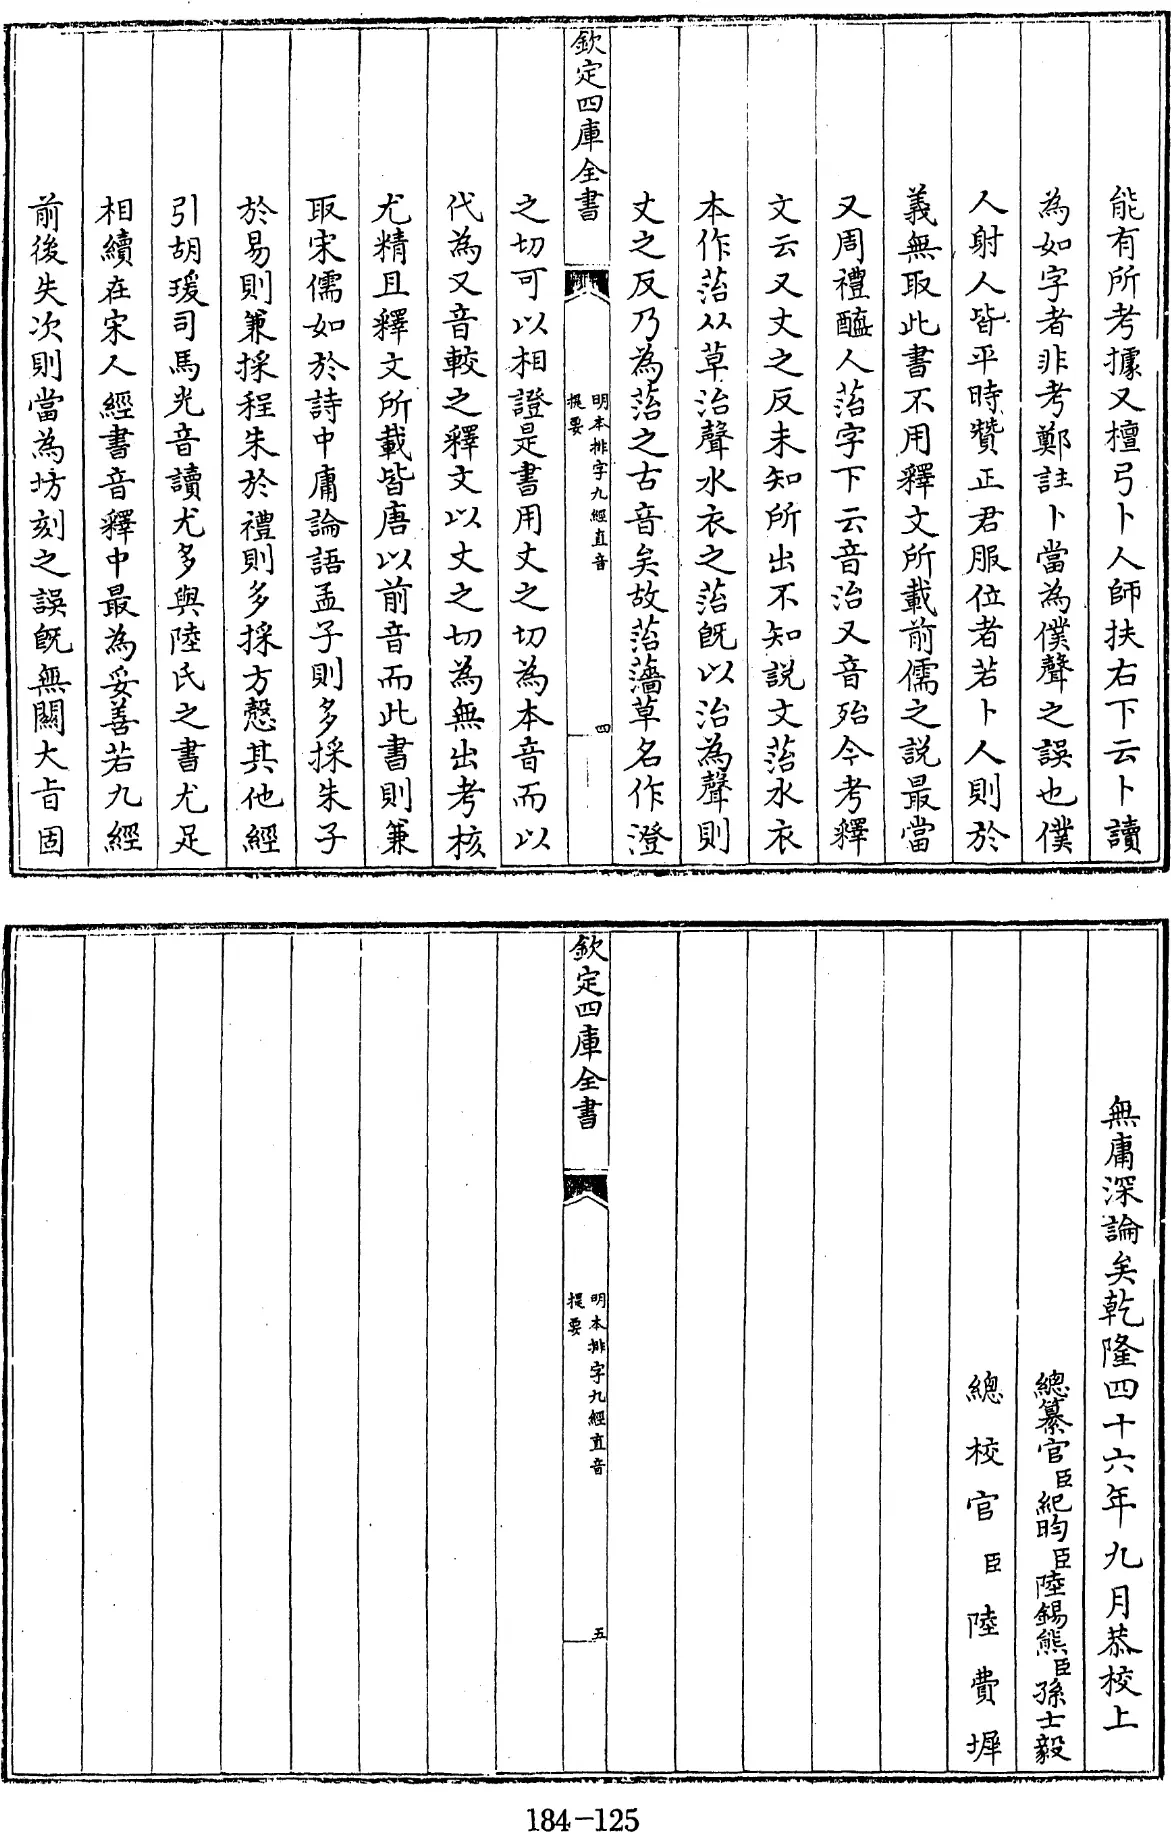 能有所考據又檀弓卜人師扶右下云卜讀
為如字者非考鄭註卜當為僕聲之誤也僕
人射人皆平時贊正君服位者若卜人則於
義無取此書不用釋文所載前儒之說最當
又周禮醢人菭字下云音治又音殆今考釋
文云又丈之反未知所出不知說文菭水衣
本作菭从草治聲水衣之菭既以治為聲則
丈之反乃為菭之古音矣故菭藫草名作澄
欽定四庫全書
明本排字九經直音
提要
四
之切可以相證是書用丈之切為本音而以
代為又音較之釋文以丈之切為無出考核
尤精且釋文所載皆唐以前音而此書則兼
取宋儒如於詩中庸論語孟子則多採朱子
於易則兼採程朱於禮則多採方慤其他經
引胡瑗司馬光音讀尤多與陸氏之書尤足
相續在宋人經書音釋中最為妥善若九經
前後失次則當為坊刻之誤既無關大旨固
無庸深論矣乾隆四十六年九月恭校上
總纂官臣紀昀臣陸錫熊臣孫士毅
總校官臣陸費墀
欽定四庫全書
明本排字九經直音
提要
五
184-125